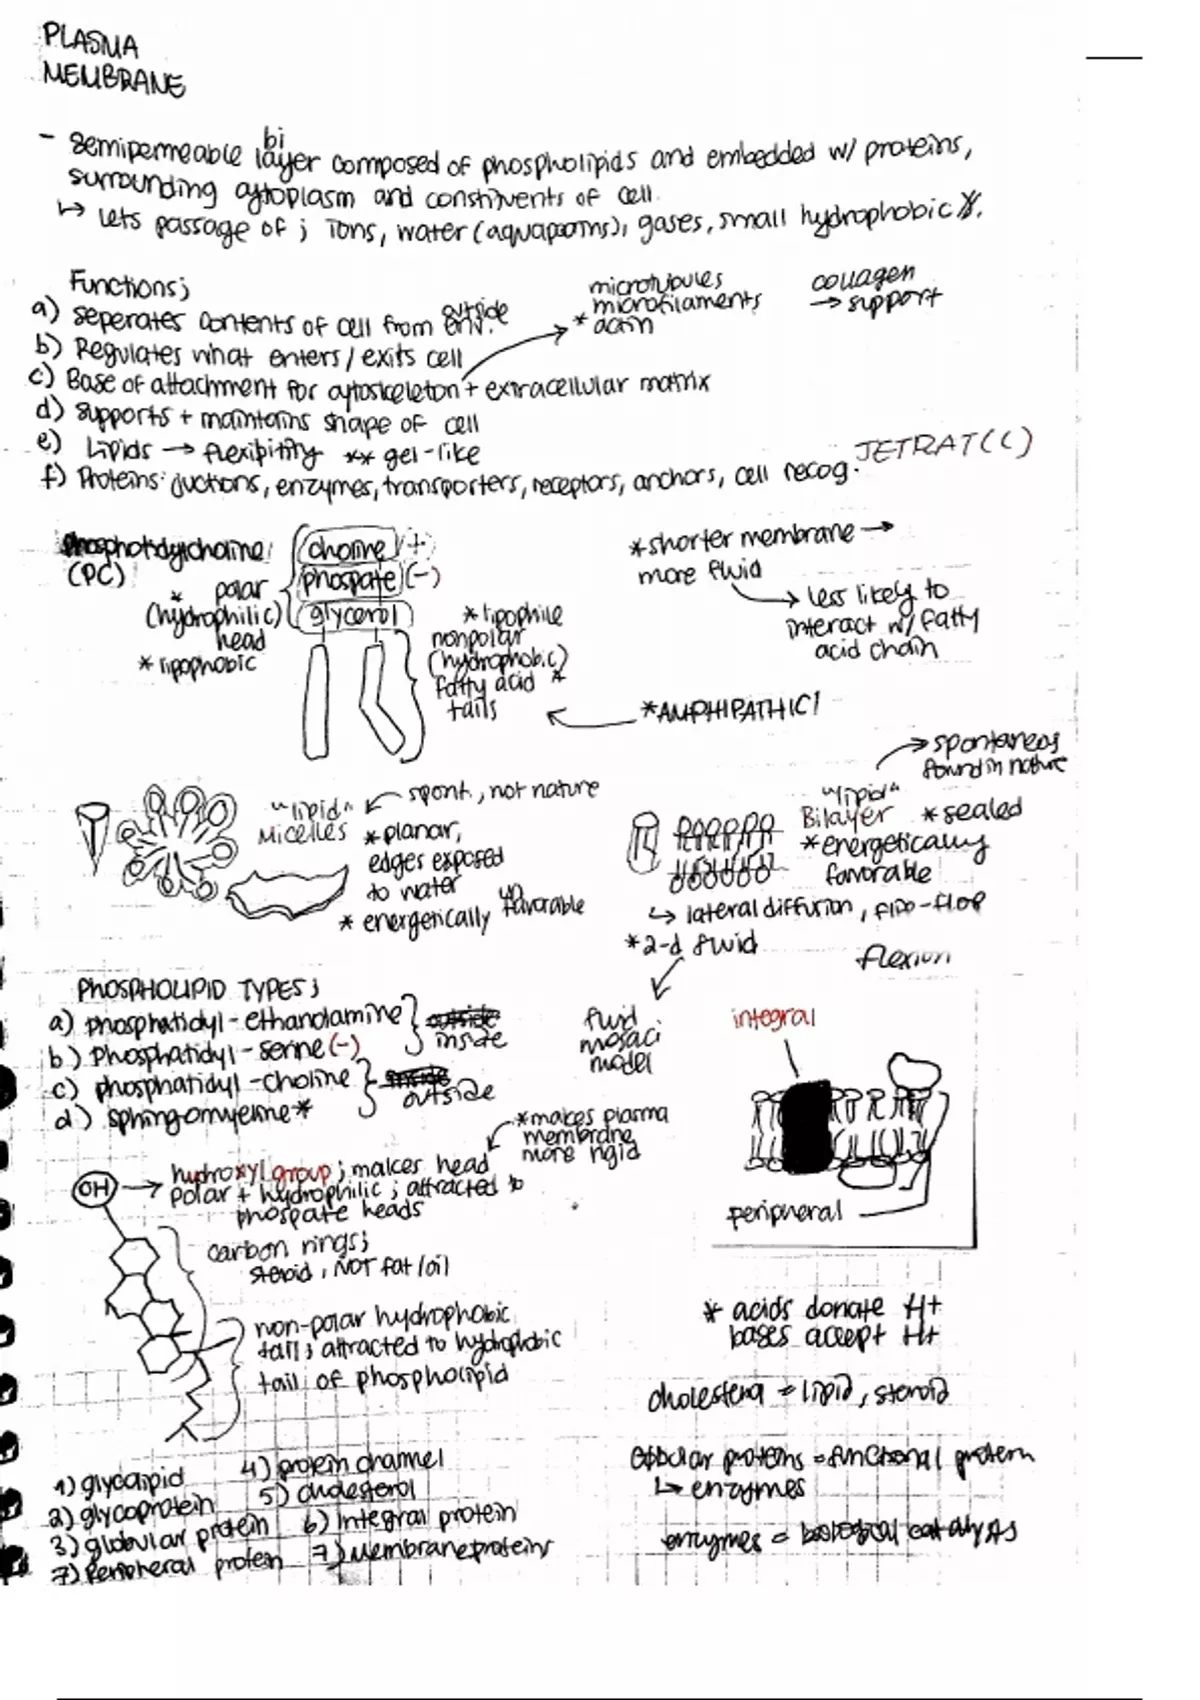 PLASMA
MEMBRANE
- semipermeable bi layer composed of phospholipids and embedded w/ proteins,
surrounding cytoplasm and constituents of cell.
↳ lets passage of ; ions, water (aquaporins), gases, small hydrophobic
Functions;
a) seperates contents of cell from outside env.
b) Regulates what enters / exits cell
c) Base of attachment for cytoskeleton + extracellular matrix
d) supports + maintains shape of cell
e) Lipids → flexibility ** gel-like
f) Proteins: juctions, enzymes, transporters, receptors, anchors, cell recog.
JETRAT(C)
microtubules
microfilaments
* actin
collagen
→ support
phosphotidylcholine:
(PC)
choline +
phospate (-)
glycerol
* polar
(hydrophilic)
head
* lipophobic
* lipophile
nonpolar
(hydrophobic)
fatty acid *
tails
* shorter membrane →
more fluid
→ less likely to
interact w/ fatty
acid chain
*AMPHIPATHIC!
"lipid"
Micelles
spont., not nature
* planar,
edges exposed
to water
* energetically un favorable
→ spontaneos
found in nature
"lipid"
Bilayer
* sealed
* energetically
favorable
↳ lateral diffusion, flip-flop
flexion
* 2-d fluid
fluid
mosaci
model
PHOSPHOLIPID TYPES;
a) phosphatidyl-ethanolamine
b) Phosphatidyl-serine (-)
outside
inside
c) phosphatidyl-choline
d) sphingomyeline*
inside
outside
*makes plasma
membrane
more rigid
integral
peripheral
OH → hydroxyl group ; makes head
polar + hydrophilic ; attracted to
phospate heads
carbon rings;
steroid, NOT fat/oil
non-polar hydrophobic
tail ; attracted to hydrophobic
tail of phospholipid
* acids donate H+
bases accept H+
cholesterol = lipid, steroid
globular proteins = functional protein
↳ enzymes
enzymes = biological catalysts
1) glycolipid
2) glycoprotein
3) globular protein
7) Peripheral protein
4) protein channel
5) cholesterol
6) Integral protein
7) Membrane proteins